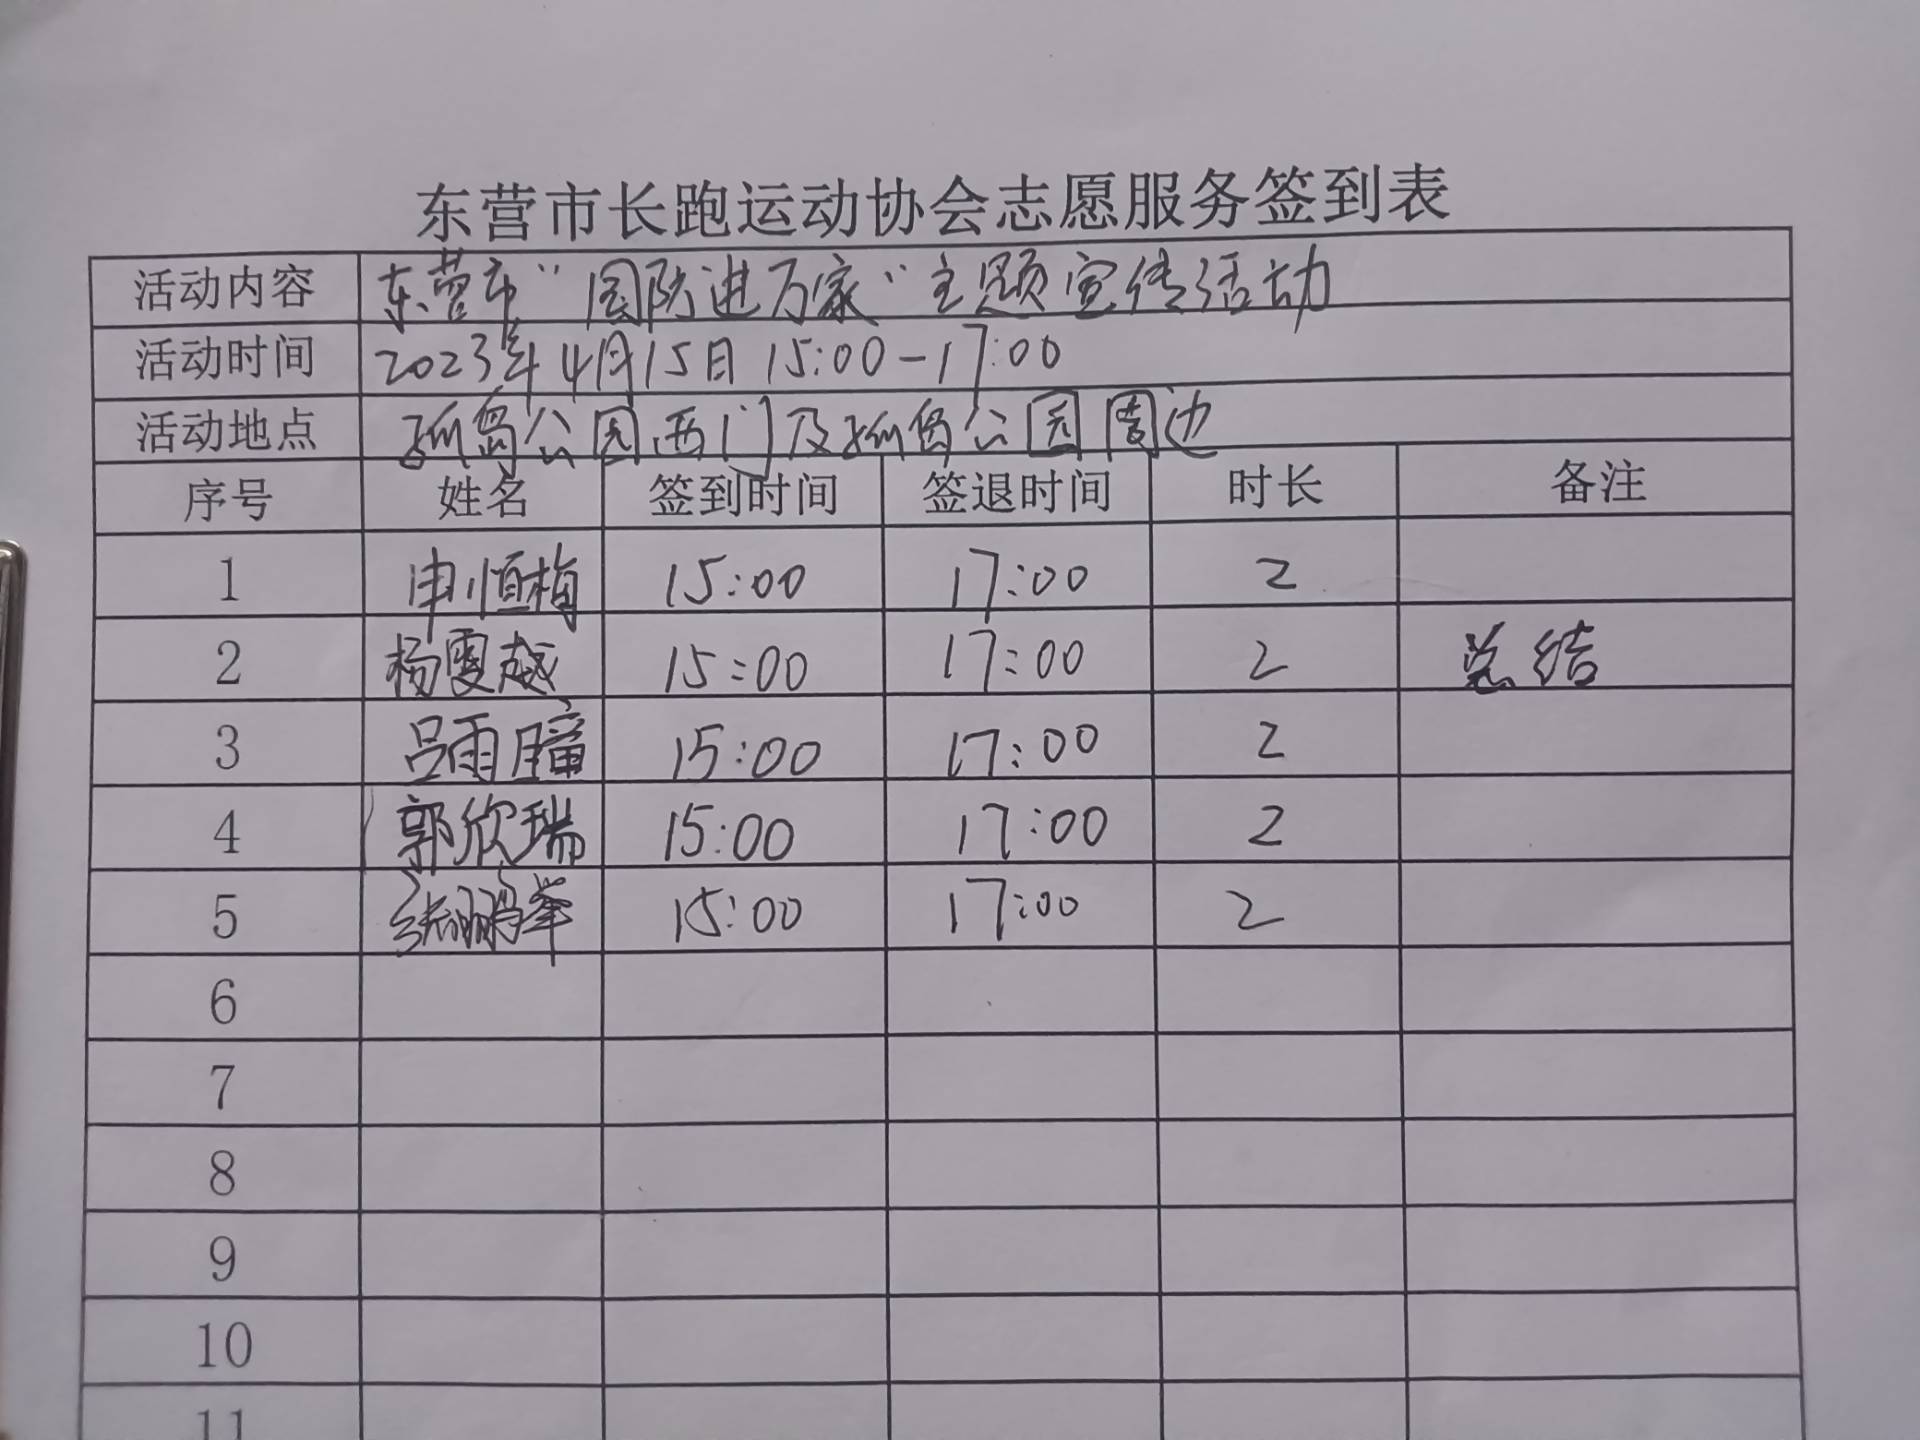 东营市长跑运动协会志愿服务签到表
活动内容 东营市“国防进万家”主题宣传活动
活动时间 2023年4月15日 15:00-17:00
活动地点 孤岛公园西门及孤岛公园周边
序号 姓名 签到时间 签退时间 时长 备注
1 申恒梅 15:00 17:00 2
2 杨雯越 15:00 17:00 2 总结
3 吕雨瞳 15:00 17:00 2
4 郭欣瑞 15:00 17:00 2
5 张鹏举 15:00 17:00 2
6
7
8
9
10
11